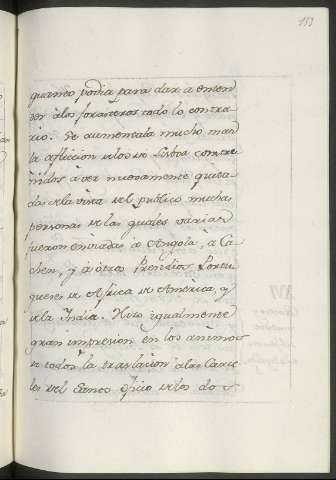 153
quanto podia para dar a enten
der àlos forasteros todo lo contra
rio. Se aumentaba mucho mas
la afliccion delos de Lisboa con tre
nidos a ver nuevamente quita
das de la vista del publico muchas
personas de las quales varias
fueron enviadas à Angola, à Ca
cheu, y à otros Presidios Portu
gueses de Africa de America, y
de la India. Hizo igualmente
gran impresion en los animos
de todos la traslacion àlas Carce
les del Santo Oficio de los dos